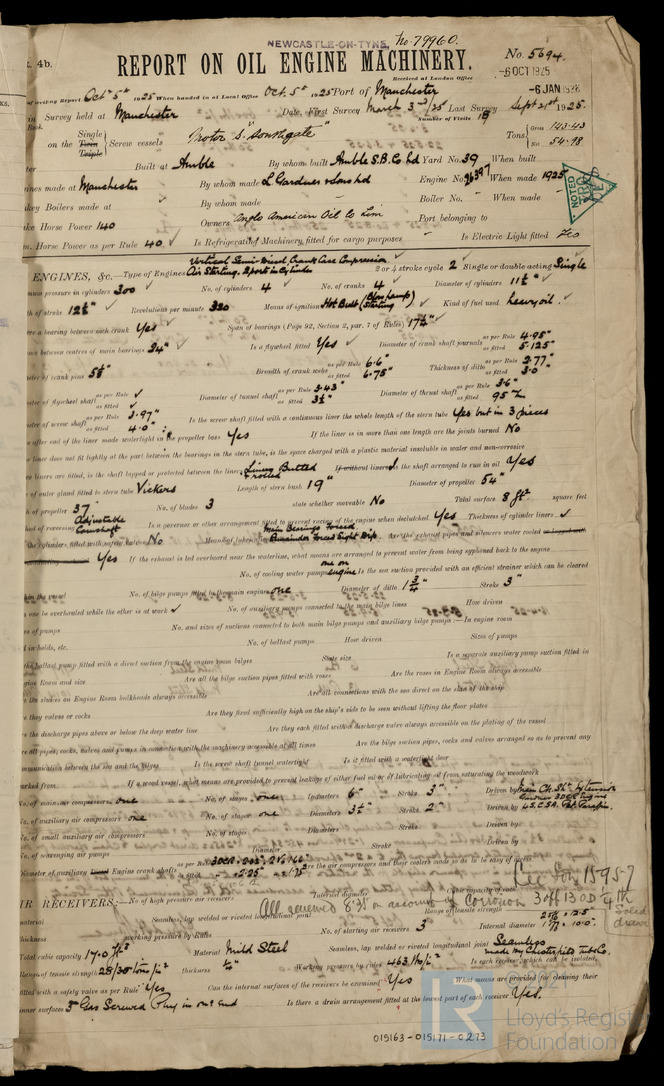 NEWCASTLE-ON-TYNE, No. 79960.
4b. REPORT ON OIL ENGINE MACHINERY. No. 5694
Received at London Office -6 OCT 1925
-6 JAN 1926
of writing Report Oct 5th 1925 When handed in at Local Office Oct. 5th 1925 Port of Manchester
Survey held at Manchester Date, First Survey March 3rd/25 Last Survey Sept 21st 1925.
Number of Visits 18
on the Single Twin Triple Screw vessels Motor S. Tons Gross 143.43 Net 54.98
Built at Amble By whom built Amble S.B. Co Ltd Yard No. 39 When built
made at Manchester By whom made L Gardner & Sons Ltd Engine No. 26397 When made 1925
Boilers made at By whom made Boiler No. - When made
Horse Power 140 Owners Anglo American Oil Co Lim Port belonging to
Horse Power as per Rule 40 Is Refrigerating Machinery fitted for cargo purposes - Is Electric Light fitted Yes
ENGINES, &c.—Type of Engines Vertical Semi-Diesel, Crank Case Compression Air Starting. 2 port in Cylinder 2 or 4 stroke cycle 2 Single or double acting Single
pressure in cylinders 300 No. of cylinders 4 No. of cranks 4 Diameter of cylinders 11½"
of stroke 12½" Revolutions per minute 320 Means of ignition Hot Bulb (Blow lamp) Starting Kind of fuel used heavy oil.
a bearing between each crank Yes Span of bearings (Page 92, Section 2, par. 7 of Rules) 17¼"
between centres of main bearings 24" Is a flywheel fitted Yes Diameter of crank shaft journals as per Rule 4.95" as fitted 5.125"
of crank pins 5½" Breadth of crank webs as per Rule 6.6" as fitted 6.75" Thickness of ditto as per Rule 2.77" as fitted 3.0"
of flywheel shaft as per Rule as fitted Diameter of tunnel shaft as per Rule 3.43" as fitted 3½" Diameter of thrust shaft as per Rule 3.6"
of screw shaft as per Rule 3.97" as fitted 4.0" Is the screw shaft fitted with a continuous liner the whole length of the stern tube Yes but in 3 pieces
after end of the liner made watertight in the propeller boss Yes If the liner is in more than one length are the joints burned No
liner does not fit tightly at the part between the bearings in the stern tube, is the space charged with a plastic material insoluble in water and non-corrosive
liners are fitted, is the shaft lapped or protected between the liners Liners Butted If without liners is the shaft arranged to run in oil Yes
outer gland fitted to stern tube Vickers Length of stern bush 19" Diameter of propeller 54"
of propeller 37" No. of blades 3 state whether moveable No Total surface 8 ft² square feet
Is a governor or other arrangement fitted to prevent racing of the engine when declutched Yes Thickness of cylinder liners
the cylinders fitted with safety valves No Means of lubrication Main Bearings Forced Remainder Forced Sight Drip. Are the exhaust pipes and silencers water cooled
Yes If the exhaust is led overboard near the waterline, what means are arranged to prevent water from being syphoned back to the engine
No. of cooling water pumps one on engine Is the sea suction provided with an efficient strainer which can be cleared
the vessel No. of bilge pumps fitted to the main engines one Diameter of ditto 1¾" Stroke 3"
one be overhauled while the other is at work No. of auxiliary pumps connected to the main bilge lines How driven
of pumps No. and sizes of suctions connected to both main bilge pumps and auxiliary bilge pumps:—In engine room
in holds, etc. No. of ballast pumps How driven Sizes of pumps
the ballast pump fitted with a direct suction from the engine room bilges State size Is a separate auxiliary pump suction fitted in
Engine Room and size Are all the bilge suction pipes fitted with roses Are the roses in Engine Room always accessible
the sluices on Engine Room bulkheads always accessible Are all connections with the sea direct on the skin of the ship
they valves or cocks Are they fixed sufficiently high on the ship's side to be seen without lifting the floor plates
the discharge pipes above or below the deep water line Are they each fitted with a discharge valve always accessible on the plating of the vessel
all pipes, cocks, valves and pumps in connection with the machinery accessible at all times Are the bilge suction pipes, cocks and valves arranged so as to prevent any
communication between the sea and the bilges Is the screw shaft tunnel watertight Is it fitted with a watertight door
worked from If a wood vessel, what means are provided to prevent leakage of either fuel oil or lubricating oil from saturating the woodwork
No. of main air compressors one No. of stages one Diameters 6" Stroke 3" Driven by
No. of auxiliary air compressors one No. of stages one Diameters 3½" Stroke 2" Driven by
No. of small auxiliary air compressors No. of stages Diameters Stroke Driven by
No. of scavenging air pumps Diameter Stroke Driven by
Diameter of auxiliary Engine crank shafts as per Rule Are the air compressors and their coolers made so as to be easy of access
AIR RECEIVERS:—No. of high pressure air receivers Internal diameter Cubic capacity of each
All renewed 8.31 on account of corrosion
material Seamless, lap welded or riveted longitudinal joint Range of tensile strength
thickness working pressure by Rules No. of starting air receivers 3 Internal diameter
Total cubic capacity 17.0 ft³ Material Mild Steel Seamless, lap welded or riveted longitudinal joint Seamless made by Chesterfield Tube Co.
Range of tensile strength 28/30 tons/□" thickness ¼" Working pressure by rules 463 lbs/□" Is each receiver, which can be isolated,
fitted with a safety valve as per Rule Yes Can the internal surfaces of the receivers be examined Yes What means are provided for cleaning their
inner surfaces 3" Gas Screwed Plug in one end Is there a drain arrangement fitted at the lowest part of each receiver Yes.
015163-015171-0273
LR
Lloyd's Register
Foundation